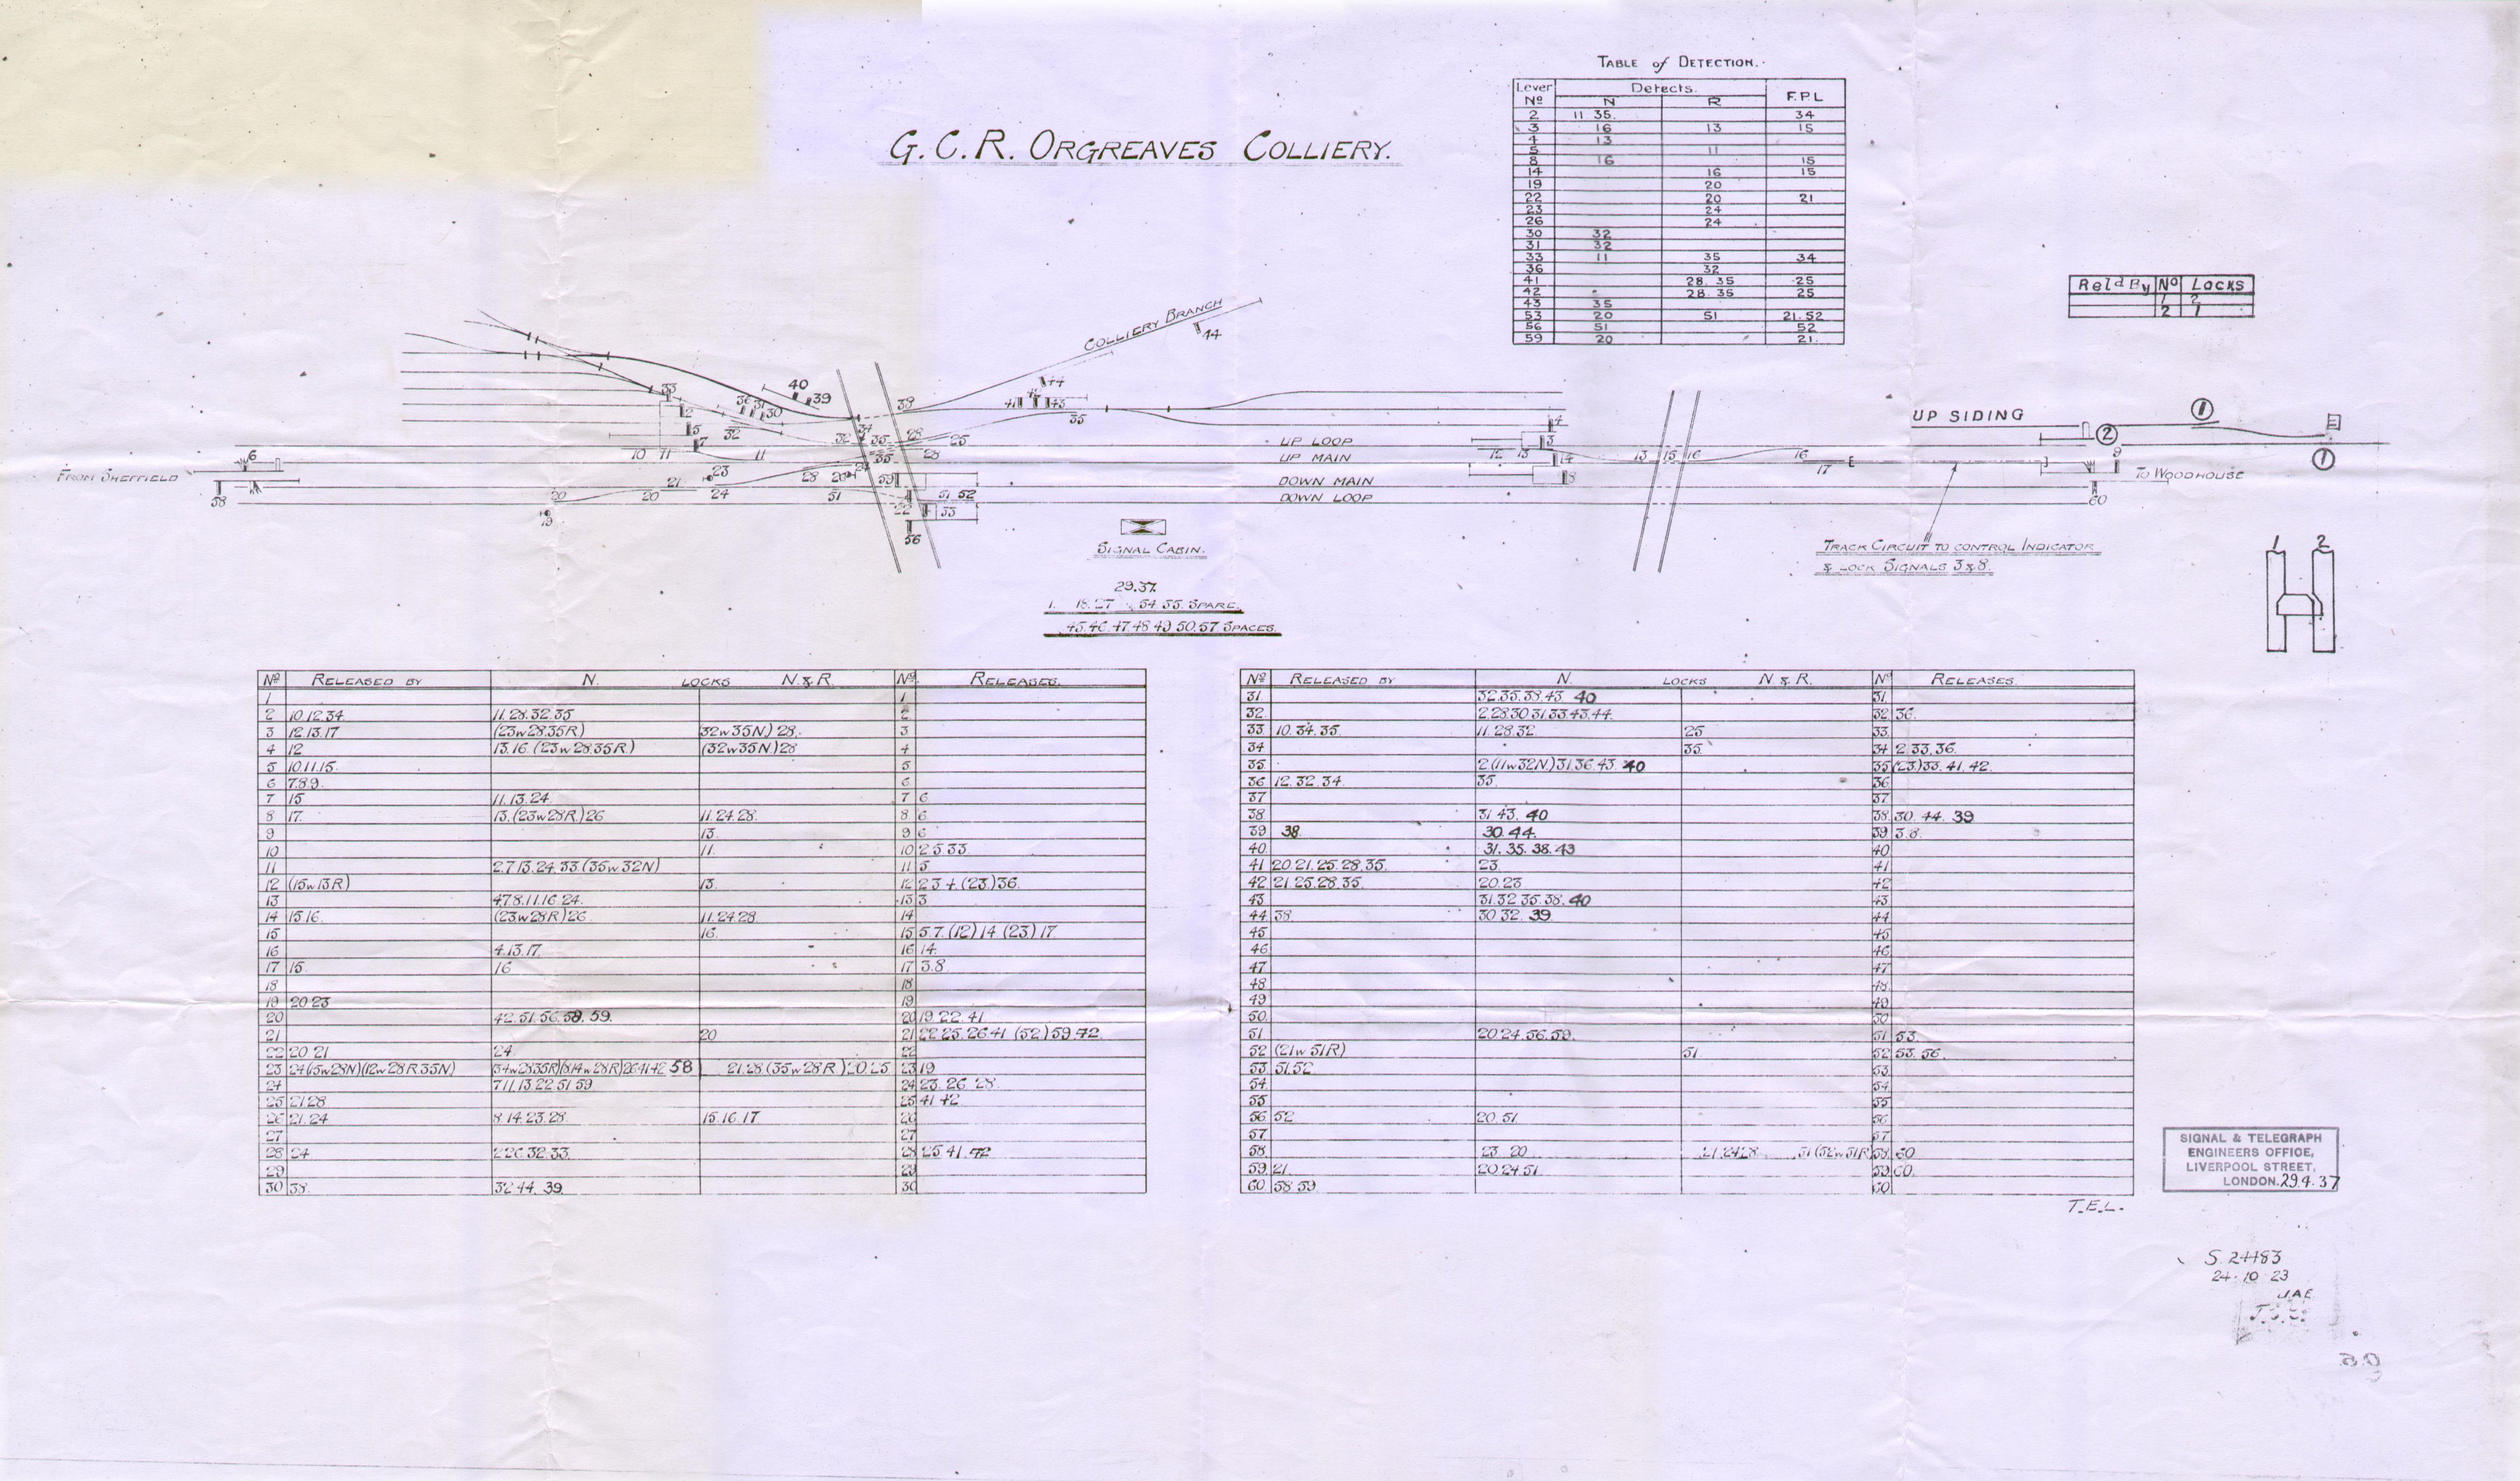 TABLE of DETECTION.
Lever Nº Detects. N R F.P.L
2 11 35. 34
3 16 13 15
4 13
5 11
8 16 15
14 16 15
19 20
22 20 21
23 24
26 24
30 32
31 32
33 11 35 34
36 32
41 28. 35 25
42 28. 35 25
43 35
53 20 51 21. 52
56 51 52
59 20 21.
G. C. R. ORGREAVES COLLIERY.
Rel'd By Nº Locks
1 2
2 1
COLLIERY BRANCH
44
40
39
33
38
44
36 31 30
2
41 43
5
32
35
4
UP SIDING
1
2
7
32 34 35 28 25
UP LOOP
3
10 11 11 35 28
UP MAIN
12 13 14 13 15 16 16
17
9
1
6
FROM SHEFFIELD
23
28 26 24 59
DOWN MAIN
8
TO WOODHOUSE
58
20 20 21 24 51 51 52
DOWN LOOP
60
19
22 53
56
SIGNAL CABIN.
TRACK CIRCUIT TO CONTROL INDICATOR
& LOCK SIGNALS 3 & 8.
1 2
29.37.
1. 18. 27 54. 55. SPARE.
45. 46. 47. 48 49. 50. 57 SPACES.
Nº RELEASED BY N. LOCKS N. & R. Nº RELEASES.
1 1
2 10.12.34. 11.28.32.35 2
3 12.13.17 (23w28.35R) (32w35N) 28. 3
4 12 13.16.(23w28.35R) (32w35N) 28 4
5 10.11.15. 5
6 7.8.9. 6
7 15 11.13.24. 7 6
8 17. 13.(23w28R) 26 11.24.28. 8 6
9 13. 9 6
10 11. 10 2.5.33.
11 2.7.13.24.33.(35w.32N) 11 5
12 (15w13R) 13. 12 2.3 4.(23.) 36.
13 4.7.8.11.16.24. 13 3
14 15.16. (23w28R) 26 11.24.28 14
15 16. 15 5.7.(12) 14 (23) 17
16 4.13.17. 16 14.
17 15. 16 17 3.8.
18 18
19 20.23 19
20 42.51.56.58.59. 20 19.22.41
21 20 21 22.25.26.41 (52.) 59.42.
22 20 21 24 22
23 24(15w28N)(12w28R35N) 58 21.28.(35w28R.) 20.25 23 19
24 7.11.13.22.51.59 24 23.26.28.
25 21.28 25 41.42
26 21.24 8.14.23.28. 15.16.17. 26
27 27
28 24 32.33. 28 25.41.42
29 29
30 38. 32.44.39. 30
Nº RELEASED BY N. LOCKS N & R. Nº RELEASES.
31. 32.35.38.43. 40 31.
32. 2.28.30 31.33.43.44. 32. 36.
33 10.34.35. 11.28.32. 25 33.
34 35. 34 2.33.36.
35. 2(11w32N.) 31.36.43. 40 35 (23.) 33.41.42.
36 12.32.34. 35. 36
37 37
38 31 43. 40 38. 30. 44. 39
39 38 30.44. 39 3.8.
40. 31. 35. 38. 43 40
41 20.21.25.28.35. 23. 41
42 21.25.28.35. 20.23 42
43 31.32.35.38. 40 43
44 38. 30 32. 39 44
45 45
46 46
47 47
48 48
49 49
50. 50
51 20.24.56.59. 51 53.
52 (21w51R) 51. 52 53.56.
53 51.52 53.
54. 54
55 55
56 52 20.51. 56
57. 57
58. 23. 20 21.24.28 51(52w51R) 58. 60
59 21. 20.24.51 59 60.
60 58.59. 60
SIGNAL & TELEGRAPH
ENGINEERS OFFICE,
LIVERPOOL STREET,
LONDON. 29.4.37
T.E.L.
S. 24483
24. 10 23
J.A.E.